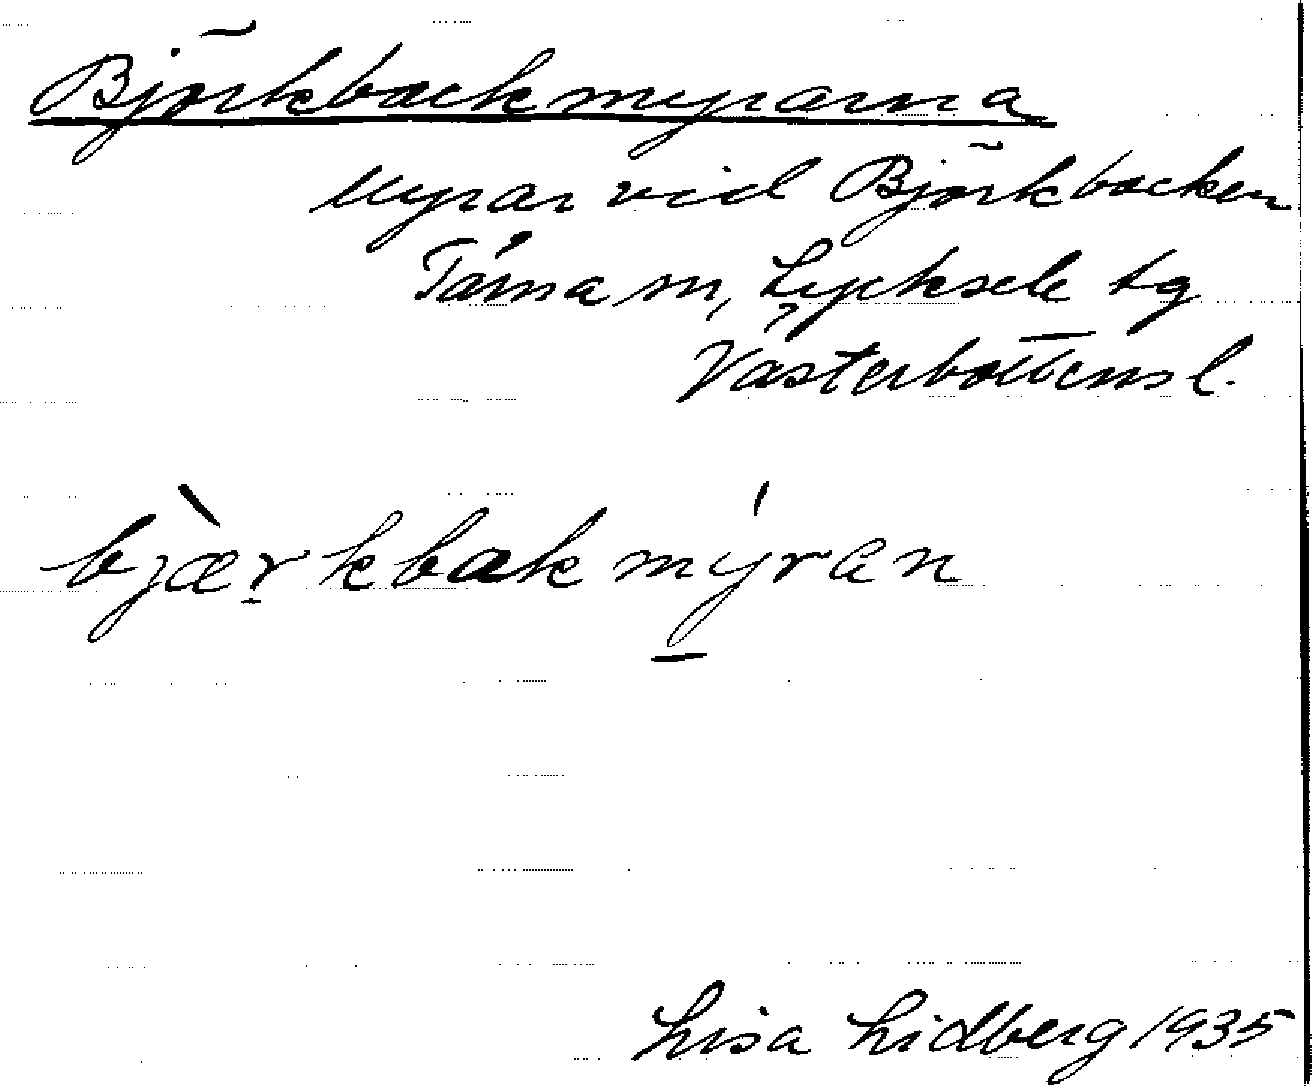 Björkbackmyrarna
Myrar vid Björkbacken
Tärna sn, Lycksele tg
Västerbottens l.
bjæ̀r̠kbakmý̠ran
Lisa Lidberg 1935